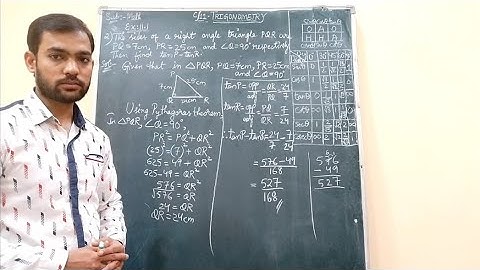 Sub:- Math
C/11- TRIGONOMETRY
Ex:11.1
2) The sides of a right angle triangle PQR are
PQ=7cm, PR=25cm and ∠Q=90° respectively
Then find tanP-tanR.
Sol:- Given that in △PQR, PQ=7cm, PR=25cm
and ∠Q=90°
P
7cm
25cm
Q
24cm
R
Using Pythagoras theorem
In △PQR, ∠Q=90°,
PR²=PQ²+QR²
(25)²=(7)²+QR²
625=49+QR²
625-49=QR²
576=QR²
√576=QR
24=QR
QR=24cm
tanP=opp/adj=QR/PQ=24/7
tanR=opp/adj=PQ/QR=7/24
∴tanP-tanR=24/7-7/24
=576-49/168
=527/168
576
-49
527
O A O
H H A
sinθ
cosθ
tanθ
cotθ
secθ